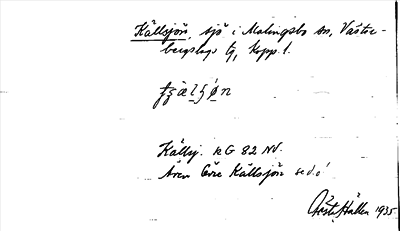 Källsjön, sjö i Malingsbo sn, Västerbergslags tg, Kopp. l.
Källsj. kG 82 NV.
Även Övre Källsjön se d.o.
Gösta Hallén 1935